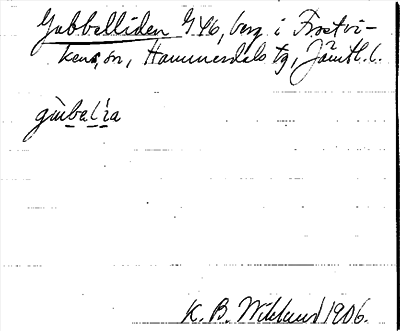 Gubbelliden G46, berg i Frostvi-
kens sn, Hammerdals tg, Jämtl. l.
gùbalìa
K. B. Wiklund 1906.